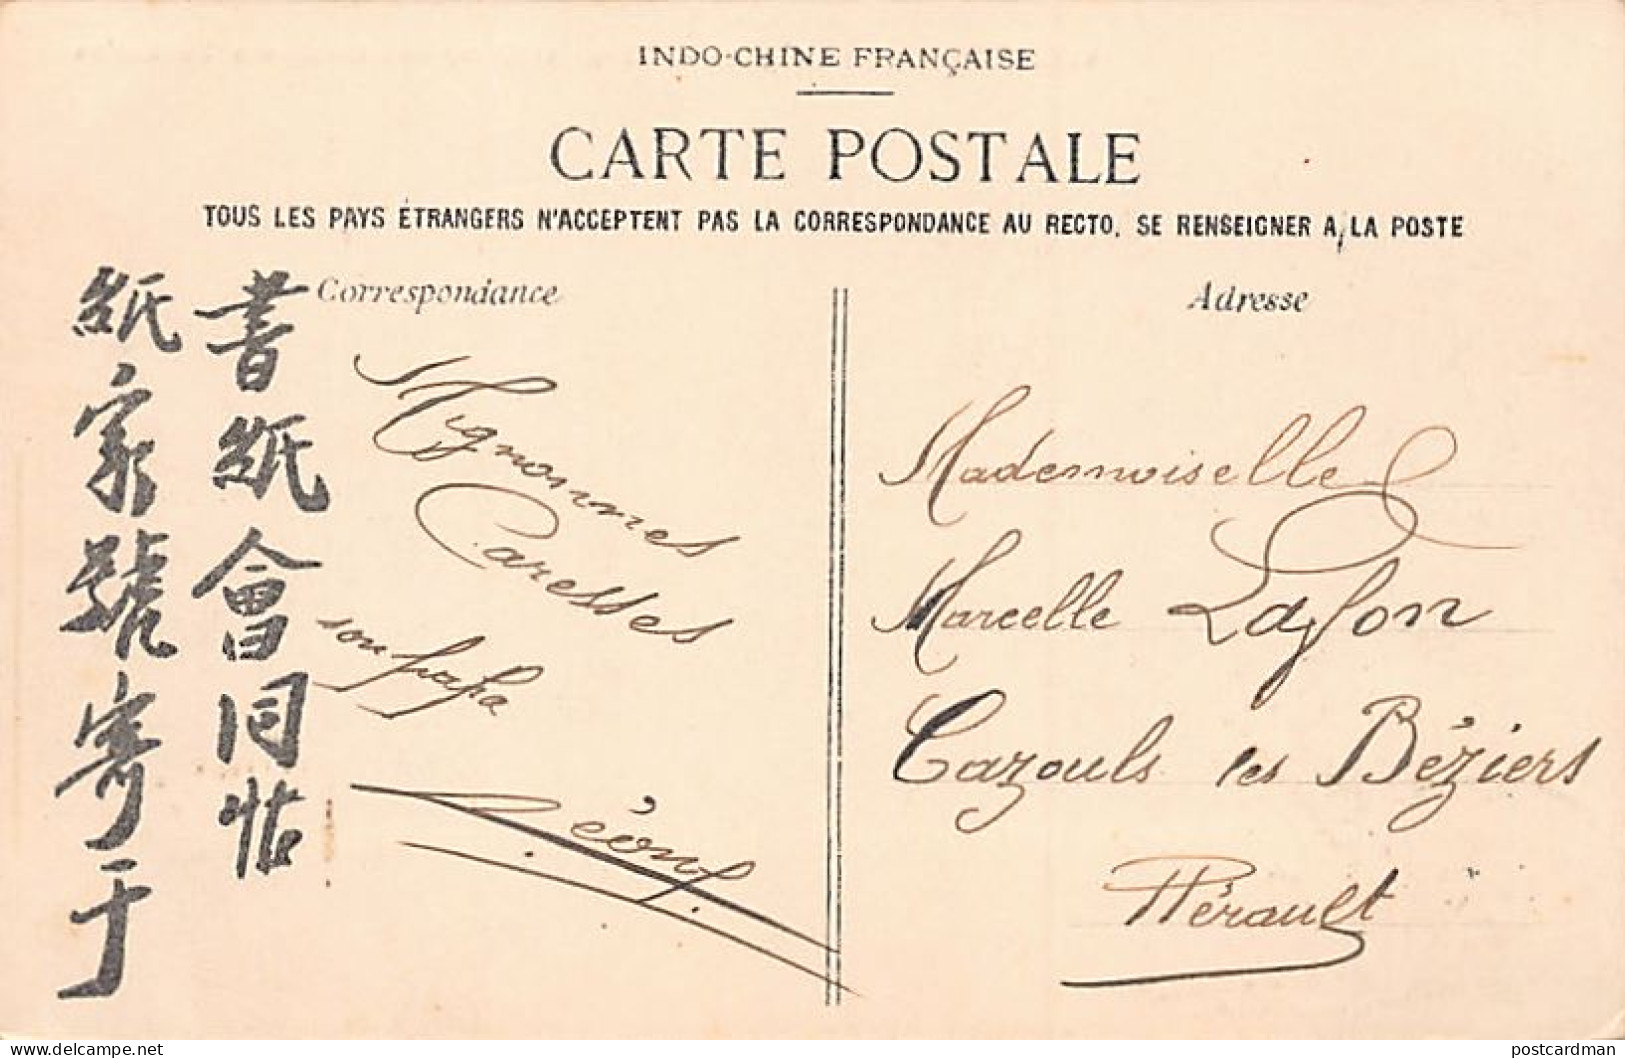 INDO-CHINE FRANÇAISE
CARTE POSTALE
TOUS LES PAYS ÉTRANGERS N'ACCEPTENT PAS LA CORRESPONDANCE AU RECTO, SE RENSEIGNER A LA POSTE
Correspondance
書紙會同帖
紙家號寄于
Mignonnes
Caresses
son papa
Léon
Adresse
Mademoiselle
Marcelle Lafon
Cazouls les Béziers
Hérault
delcampe.net
postcardman